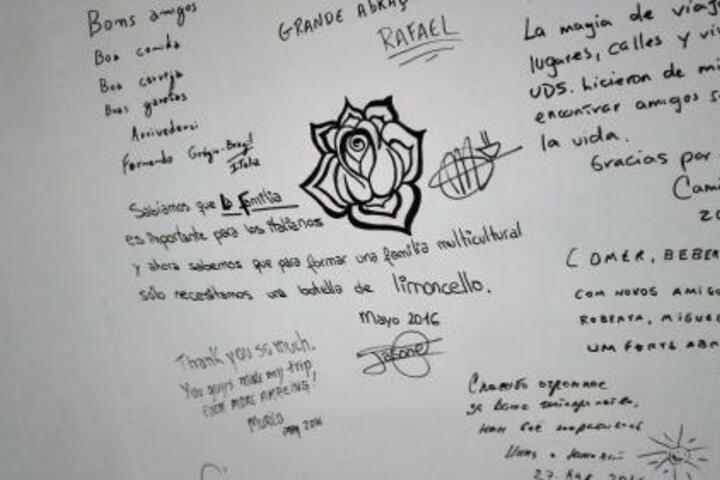 Bons amigos
Boa comida
Boa cerveja
Boas garotas
Arrivederci
Fernando Grégio - Brazil
Italia
GRANDE ABRAÇ
RAFAEL
La magia de viaj
lugares, calles y vi
UDS. hicieron de mi
encontrar amigos
la vida.
Gracias por
Cami
20
Sabíamos que la familia
es importante para los italianos
y ahora sabemos que para formar una familia multicultural
sólo necesitamos una botella de limoncello.
Mayo 2016
COMER, BEBER
COM NOVOS AMIGO
ROBERTA, MIGUEL
UM FORTE ABR
Thank you so much.
You guys made my trip
EVEN MORE AMAZING!
Murilo
2016
Спасибо огромное
за Ваше
нам всё
27